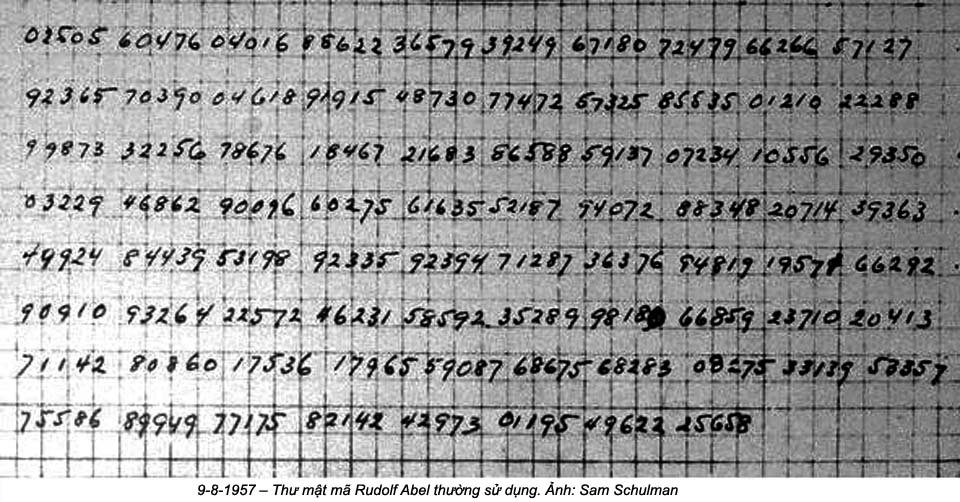 02505 60476 04016 88622 36579 39249 67180 72479 66266 57127
92365 70390 04618 91915 48730 77472 67325 85535 01210 22288
99873 32256 78676 18467 21683 86588 59137 07234 10556 29350
03229 46862 90096 60275 61635 52187 94072 88348 20714 39363
49924 84439 53198 92335 92394 71287 36376 94819 19571 66292
90910 93264 22572 46231 58592 35289 66859 23710 20413
71142 80860 17536 17965 59087 68675 68283 08275 33139 53357
75586 89949 77175 82142 42973 01195 49622 25658
9-8-1957 – Thư mật mã Rudolf Abel thường sử dụng. Ảnh: Sam Schulman